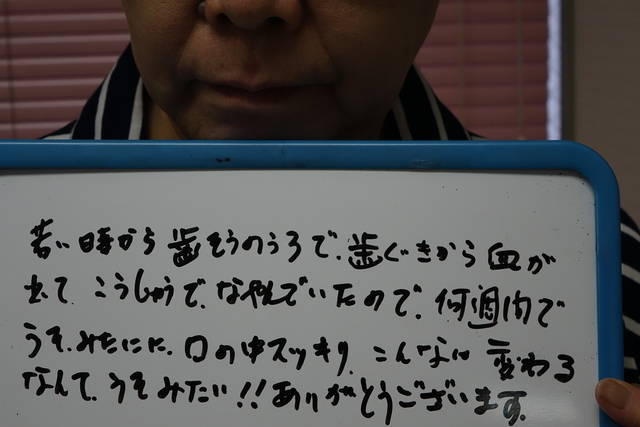 若い時から歯そうのうろで、歯ぐきから血が
出て、こうしゅうで、なやんでいたので、何週内で
うそみたいに、口の中スッキリ、こんなに変わる
なんて、うそみたい!!ありがとうございます。